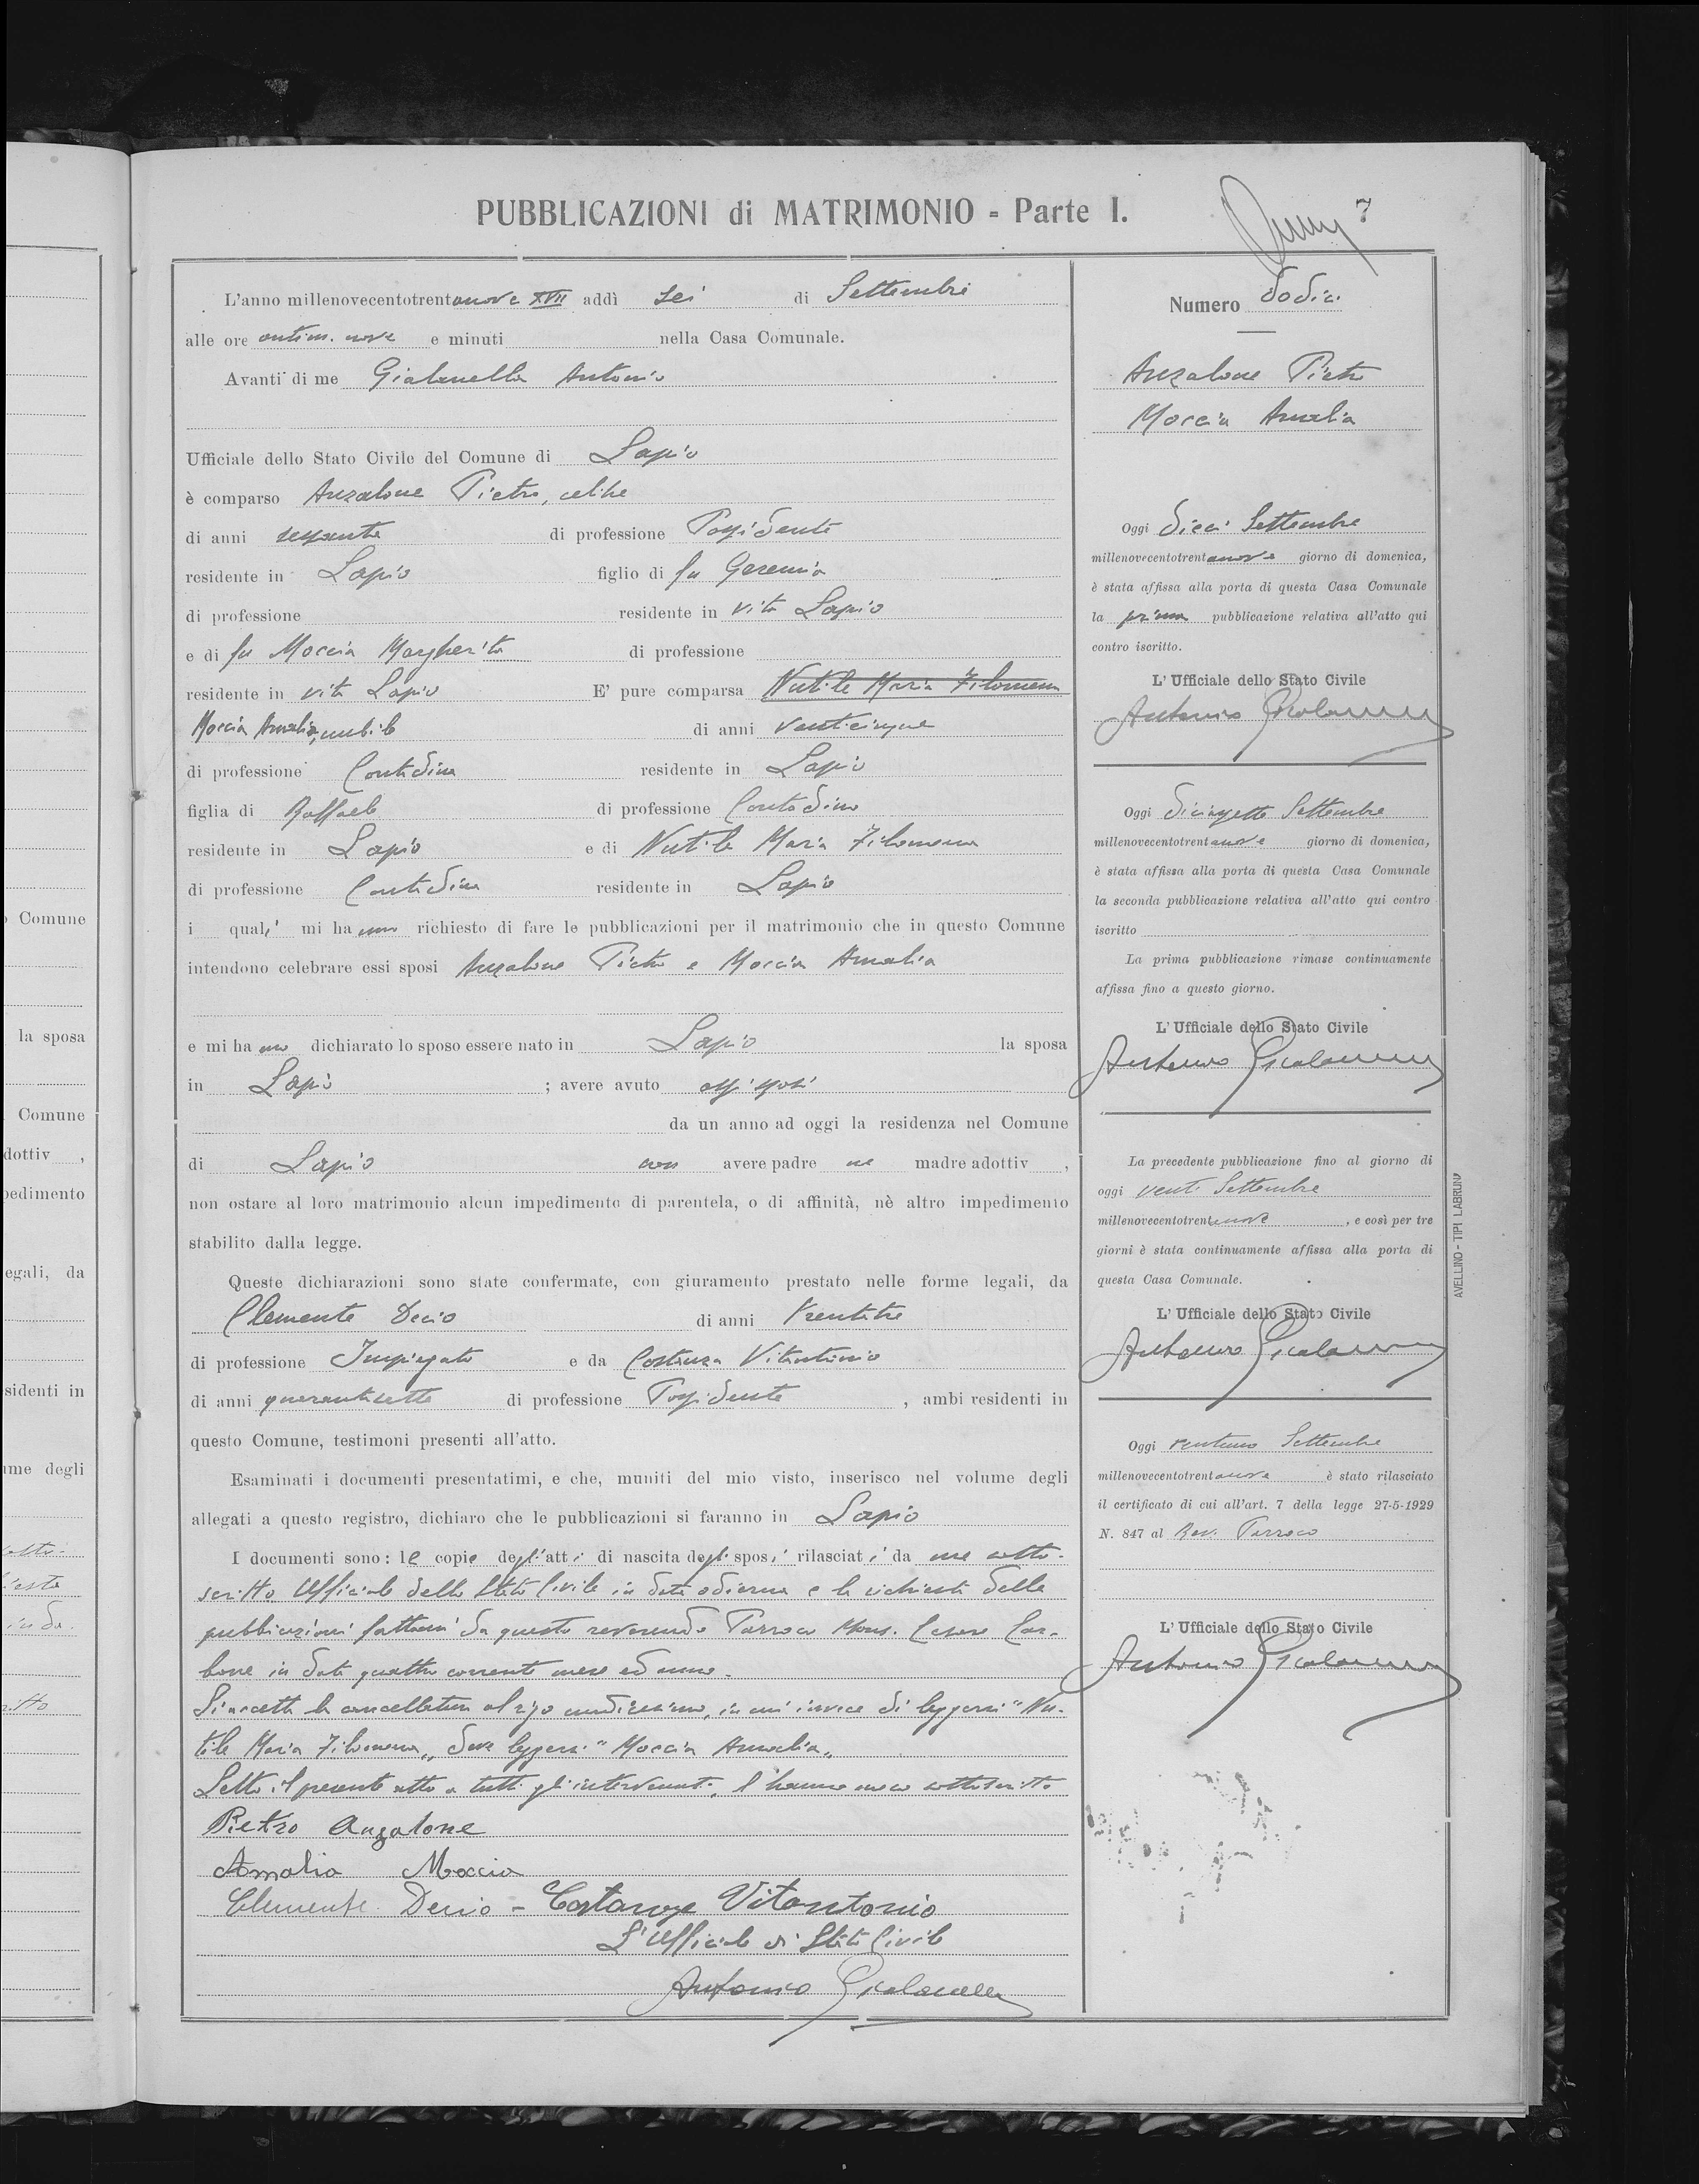 PUBBLICAZIONI di MATRIMONIO - Parte I.
7
L'anno millenovecentotrentanove XVII addì sei di Settembre
alle ore antim. nove e minuti nella Casa Comunale.
Avanti di me Giolanella Antonio
Ufficiale dello Stato Civile del Comune di Lapio
è comparso Anzalone Pietro, celibe
di anni sessanta di professione Possidente
residente in Lapio figlio di fu Geremia
di professione residente in vita Lapio
e di fu Moccia Margherita di professione
residente in vita Lapio E' pure comparsa Nutile Maria Filomena
Moccia Amalia, nubile di anni venticinque
di professione Contadina residente in Lapio
figlia di Raffaele di professione Contadino
residente in Lapio e di Nutile Maria Filomena
di professione Contadina residente in Lapio
i quali mi hanno richiesto di fare le pubblicazioni per il matrimonio che in questo Comune
intendono celebrare essi sposi Anzalone Pietro e Moccia Amalia
e mi hanno dichiarato lo sposo essere nato in Lapio la sposa
in Lapio ; avere avuto essi sposi
da un anno ad oggi la residenza nel Comune
di Lapio non avere padre ne madre adottiv ,
non ostare al loro matrimonio alcun impedimento di parentela, o di affinità, nè altro impedimento
stabilito dalla legge.
Queste dichiarazioni sono state confermate, con giuramento prestato nelle forme legali, da
Clemente Decio di anni trentatre
di professione Impiegato e da Costanza Vitantonio
di anni quarantasette di professione Possidente , ambi residenti in
questo Comune, testimoni presenti all'atto.
Esaminati i documenti presentatimi, e che, muniti del mio visto, inserisco nel volume degli
allegati a questo registro, dichiaro che le pubblicazioni si faranno in Lapio
I documenti sono: le copie degli atti di nascita degli sposi rilasciati da me sotto-
scritto Ufficiale dello Stato Civile in data odierna e la richiesta delle
pubblicazioni fattami da questo reverendo Parroco Mons. Cesare Car-
bone in data quattro corrente mese ed anno.
Si accetta la cancellatura al rigo undicesimo, in cui invece di leggersi "Nu-
tile Maria Filomena" deve leggersi "Moccia Amalia"
Letto il presente atto a tutti gli intervenuti, l'hanno meco sottoscritto
Pietro Anzalone
Amalia Moccia
Clemente Decio - Costanza Vitantonio
L'Ufficiale di Stato Civile
Antonio Giolanella
Numero dodici
Anzalone Pietro
Moccia Amalia
Oggi dieci Settembre
millenovecentotrentanove giorno di domenica,
è stata affissa alla porta di questa Casa Comunale
la prima pubblicazione relativa all'atto qui
contro iscritto.
L'Ufficiale dello Stato Civile
Antonio Giolanella
Oggi diciassette Settembre
millenovecentotrentanove giorno di domenica,
è stata affissa alla porta di questa Casa Comunale
la seconda pubblicazione relativa all'atto qui contro
iscritto
La prima pubblicazione rimase continuamente
affissa fino a questo giorno.
L'Ufficiale dello Stato Civile
Antonio Giolanella
La precedente pubblicazione fino al giorno di
oggi venti Settembre
millenovecentotrentanove , e così per tre
giorni è stata continuamente affissa alla porta di
questa Casa Comunale.
L'Ufficiale dello Stato Civile
Antonio Giolanella
Oggi ventuno Settembre
millenovecentotrentanove è stato rilasciato
il certificato di cui all'art. 7 della legge 27-5-1929
N. 847 al Rev. Parroco
L'Ufficiale dello Stato Civile
Antonio Giolanella
AVELLINO - TIPI LABRUNO
Comune
la sposa
Comune
dottiv ,
pedimento
egali, da
sidenti in
ume degli